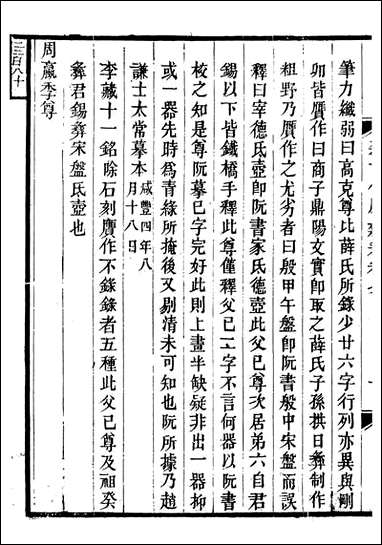 筆力纖弱曰高克尊比薛氏所錄少廿六字行列亦異與剛
卯皆贋作曰商子鼎陽文實卽取之薛氏子孫拱日彝制作
粗野乃贋作之尤劣者曰般甲午盤卽阮書般中宋盤而誤
釋曰宰德氏壺卽阮書家氏德壺此父已尊次居弟六自君
錫以下皆鐵橋手釋此尊僅釋父已二字不言何器以阮書
校之知是尊阮摹已字完好此則上畫半缺疑非出一器抑
或一器先時爲青綠所掩後又剔清未可知也阮所據乃趙
謙士太常摹本咸豐四年八月十八日
李藏十一銘除石刻贋作不錄錄者五種此父已尊及祖癸
彝君錫彝宋盤氏壺也
周嬴季尊
二三百八十